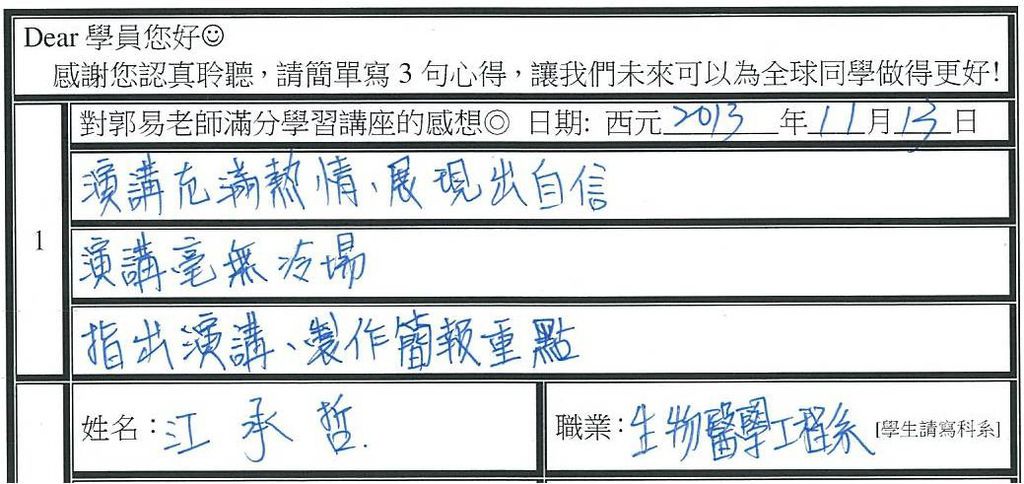 Dear 學員您好☺
感謝您認真聆聽，請簡單寫 3 句心得，讓我們未來可以為全球同學做得更好!
1
對郭易老師滿分學習講座的感想◎ 日期: 西元 2013 年 11 月 13 日
演講充滿熱情、展現出自信
演講毫無冷場
指出演講、製作簡報重點
姓名：江承哲.
職業：生物醫學工程系 [學生請寫科系]